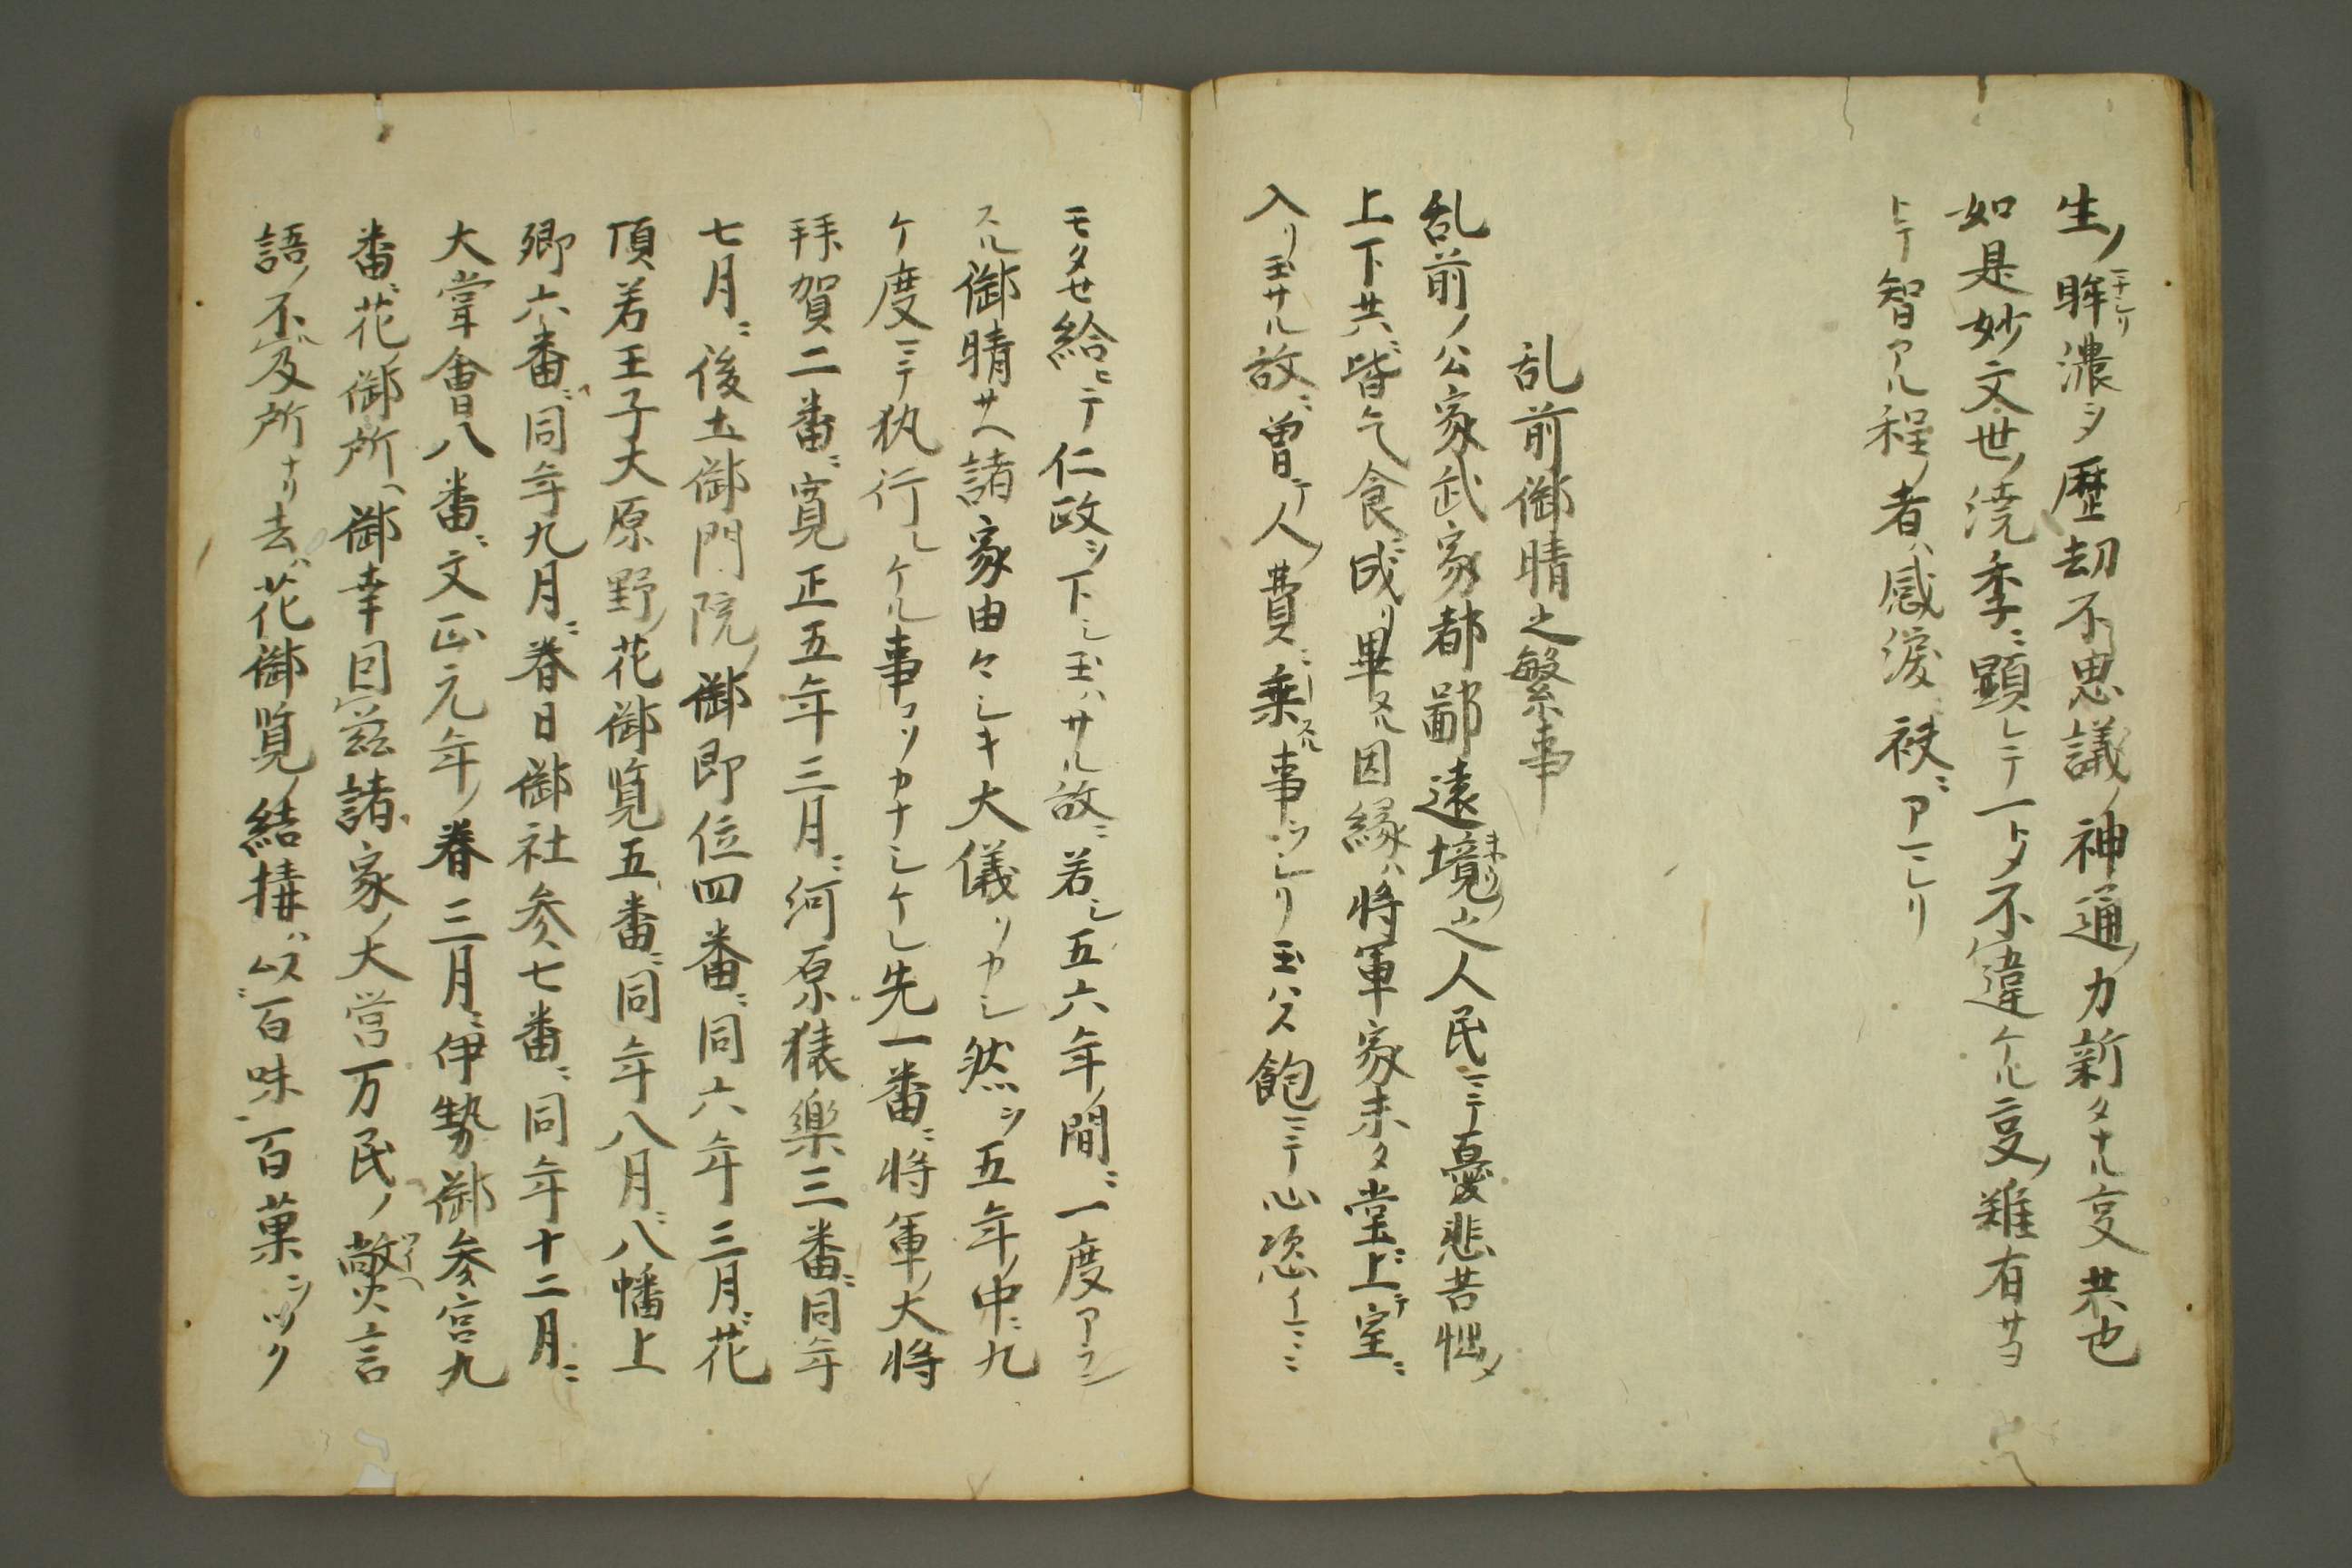 生ノ眸濃シ歴劫不思議ノ神通ノ力新タナル㕝共也
如是妙文世ノ澆季ニ顕レテ一トメ不違ケル㕝ノ難有サヨ
トテ智アル程ノ者ハ感涙ヲ袂ニアマレリ
乱前御晴之繁事
乱前ノ公家武家都鄙遠境之人民ニテ憂悲苦悩ノ
上下共ニ皆乞食ニ成リ畢ヌル因縁ハ将軍家未タ堂ニ上テ室ニ
入リ玉サル故ニ曽テ人ノ費ニ乗スル事ヲシリ玉ハス飽ニテ心恣イマヽニ
モタせ給ヒテ仁政ヲ下シ玉ハサル故ニ若シ五六年ノ間ニ一度アラン
スル御晴サヘ諸家由々シキ大儀ソカシ然ヲ五年ノ中ニ九
ケ度ニテ執行レケル事コソカナシケレ先一番ニ将軍ノ大将
拝賀二番ニ寛正五年三月ニ河原猿樂三番ニ同年
七月ニ後土御門院ノ御即位四番ニ同六年三月ニ花
頂若王子大原野ノ花御覧五番ニ同年八月ニ八幡上
卿六番ニ同年九月ニ春日御社参七番ニ同年十二月ニ
大甞會八番ニ文正元年ノ春三月ニ伊勢御参宮九
番ニ花ノ御所ヘ御幸因茲諸家ノ大営万民ノ弊言
語ノ不及所ナリ去ハ花御覧ノ結構ハ以百味百菓ヲツク